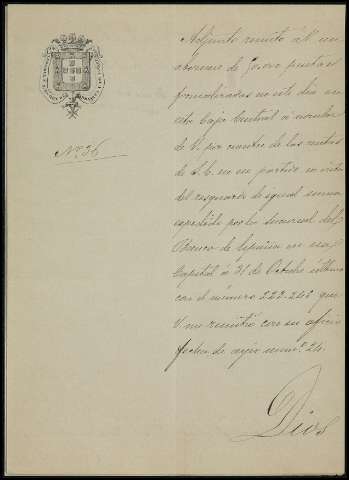 Nº 36
Adjunto remito á V. un
abonaré de 50.000 pesetas
formalizadas en este dia en
esta Caja Central á nombre
de V. por cuenta de las rentas
de S.E. en su partido en vista
del resguardo de igual suma
expedido por la sucursal del
Banco de España en esa
Capital á 31 de Octubre último
con el número 222.242 que
V. me remitió con su oficio
fecha de ayer núm.º 24.
Dios